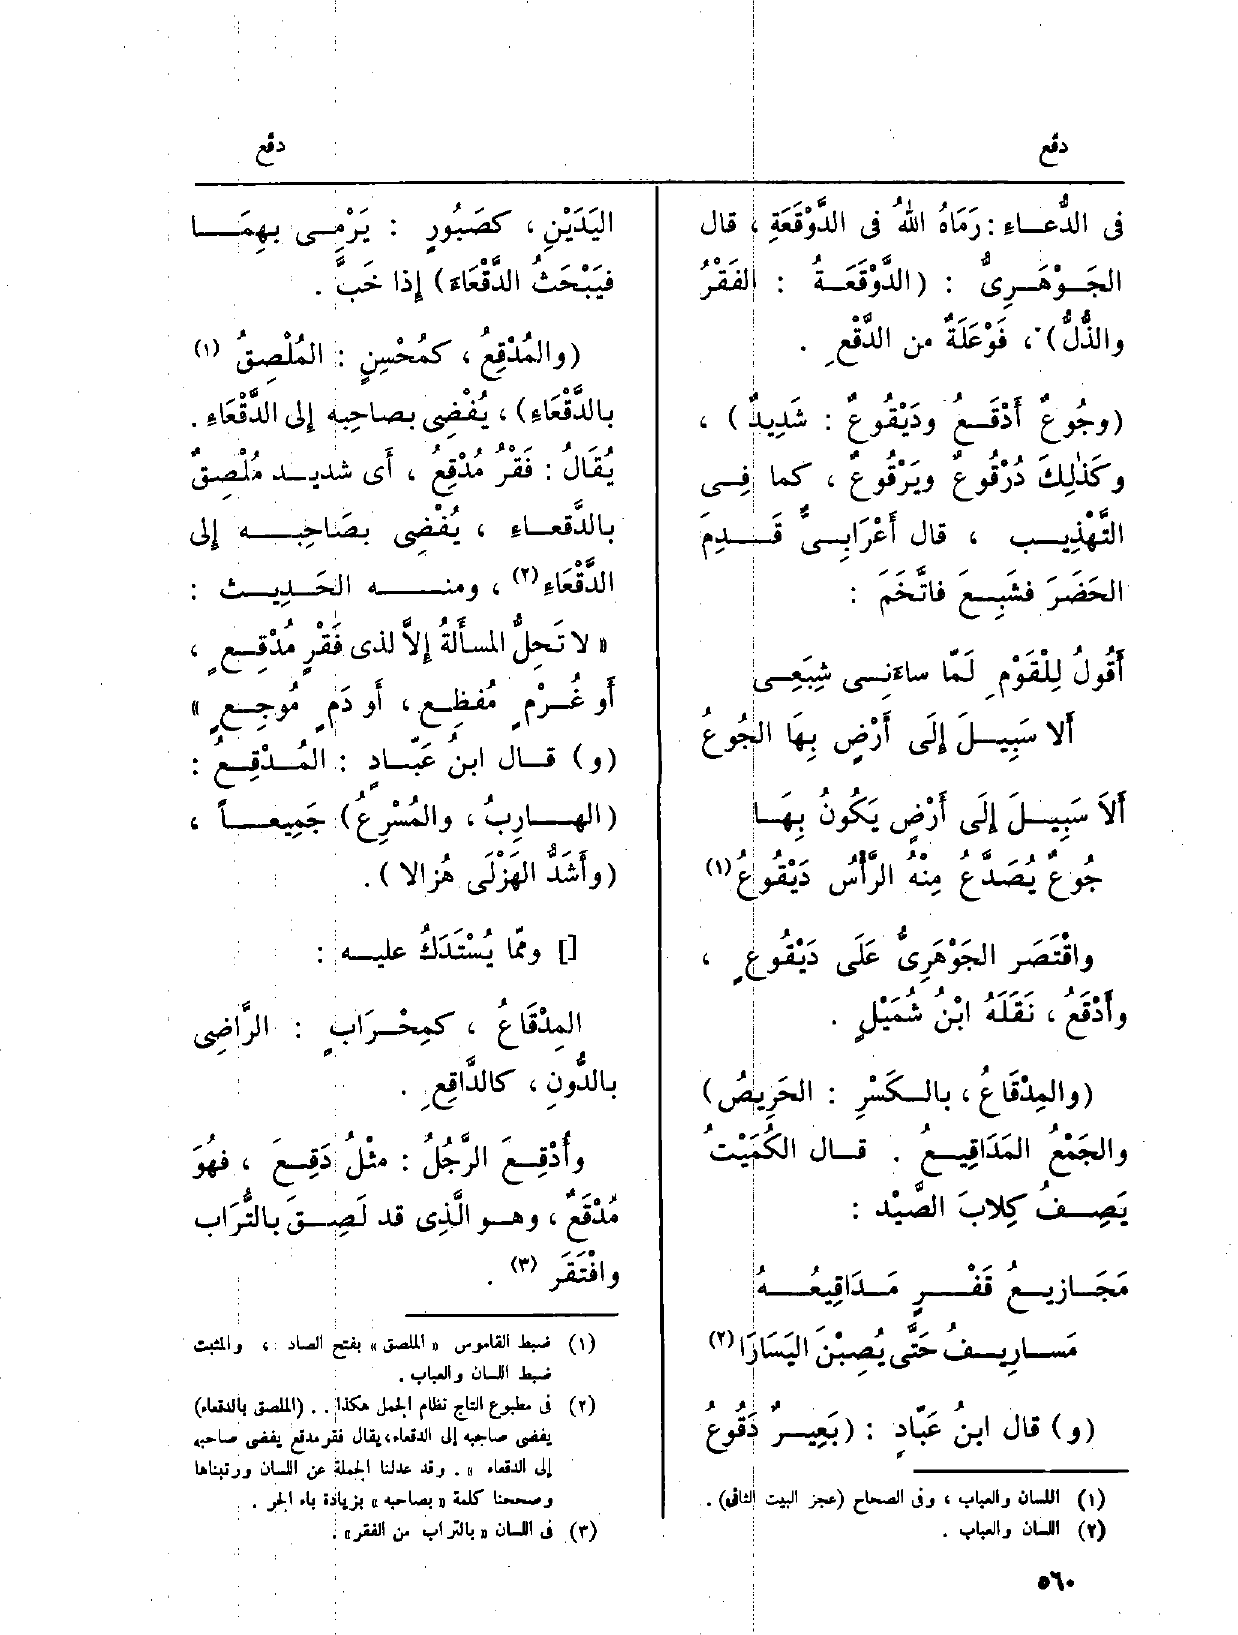 دقع
دقع
فى الدُّعـاءِ : رَمَاهُ اللهُ فى الدَّوْقَعَةِ ، قال
الجَـوْهَـرِىُّ : (الدَّوْقَعَـةُ : الفَقْرُ
والذُّلُّ) ، فَوْعَلَةٌ من الدَّقْعِ .
(وجُوعٌ أَدْقَـعُ ودَيْقُوعٌ : شَدِيدٌ) ،
وكَذٰلِكَ دُرْقُوعٌ ويَرْقُوعٌ ، كما فِـى
التَّهْذِيـبِ ، قال أَعْرَابِـىٌّ قَـدِمَ
الحَضَرَ فشَبِـعَ فاتَّخَمَ :
أَقُولُ لِلْقَوْمِ لَمَّا ساءَنِـى شِبَعِـى
أَلا سَبِيـلَ إِلَى أَرْضٍ بِهَا الجُوعُ
أَلاَ سَبِيـلَ إِلَى أَرْضٍ يَكُونُ بِهَـا
جُوعٌ يُصَدَّعُ مِنْهُ الرَّأْسُ دَيْقُوعُ (١)
واقْتَصَر الجَوْهَرِىُّ عَلَى دَيْقُوعٍ ،
وأَدْقَعُ ، نَقَلَهُ ابْنُ شُمَيْلٍ .
(والمِدْقَاعُ ، بالـكَسْرِ : الحَرِيصُ)
والجَمْعُ المَدَاقِيـعُ . قـال الكُمَيْتُ
يَصِـفُ كِلابَ الصَّيْد :
مَجَـازِيـعُ قَفْـرٍ مَـدَاقِيعُـهُ
مَسَـارِيـفُ حَتَّى يُصِبْنَ اليَسَارَا (٢)
(و) قال ابنُ عَبّادٍ : (بَعِيـرٌ دَقُوعُ
(١) اللسان والعباب ، وفى الصحاح (عجز البيت الثانى) .
(٢) اللسان والعباب .
اليَدَيْنِ ، كصَبُورٍ : يَرْمِـى بِهِمَـا
فيَبْحَثُ الدَّقْعَاءَ) إِذا خَبَّ .
(والمُدْقِعُ ، كمُحْسِنٍ : المُلْصِقُ (١)
بالدَّقْعَاءِ) ، يُفْضِى بصاحِبِه إِلى الدَّقْعَاءِ .
يُقَالُ : فَقْرٌ مُدْقِعٌ ، أَى شديـد مُلْصِقٌ
بالدَّقعـاءِ ، يُفْضِى بصَاحِبِـهِ إِلى
الدَّقْعَاءِ (٢) ، ومنـه الحَـدِيـث :
« لا تَحِلُّ المسأَلةُ إِلاَّ لذى فَقْرٍ مُدْقِـعٍ ،
أَو غُـرْمٍ مُفظِـعٍ ، أَو دَمٍ مُوجِـعٍ »
(و) قـال ابنُ عَبّـادٍ : المُـدْقِـعُ :
(الهـارِبُ ، والمُسْرِعُ) جَمِيعـاً ،
(وأَشَدُّ الهَزْلَى هُزالا) .
[] وممّا يُسْتَدَكُ عليـه :
المِدْقَاعُ ، كمِحْـرَابٍ : الرَّاضِى
بالدُّونِ ، كالدَّاقِعِ .
وأُدْقِـعَ الرَّجُلُ : مثْلُ دَقِـعَ ، فهُوَ
مُدْقَعٌ ، وهـو الَّذِى قد لَصِـقَ بالتُّرَاب
وافْتَقَر (٣) .
(١) ضبط القاموس « الملصق » بفتح الصاد ، والمثبت
ضبط اللسان والعباب .
(٢) فى مطبوع التاج نظام الجمل هكذا . . (الملصق بالدقعاء)
يفضى صاحبه إلى الدقعاء، يقال فقر مدقع يفضى صاحبه
إلى الدقعاء » . وقد عدلنا الجملة عن اللسان ورتبناها
وصححنا كلمة « بصاحبه » بزيادة باء الجر .
(٣) فى اللسان « بالتراب من الفقر » .
٥٦٠